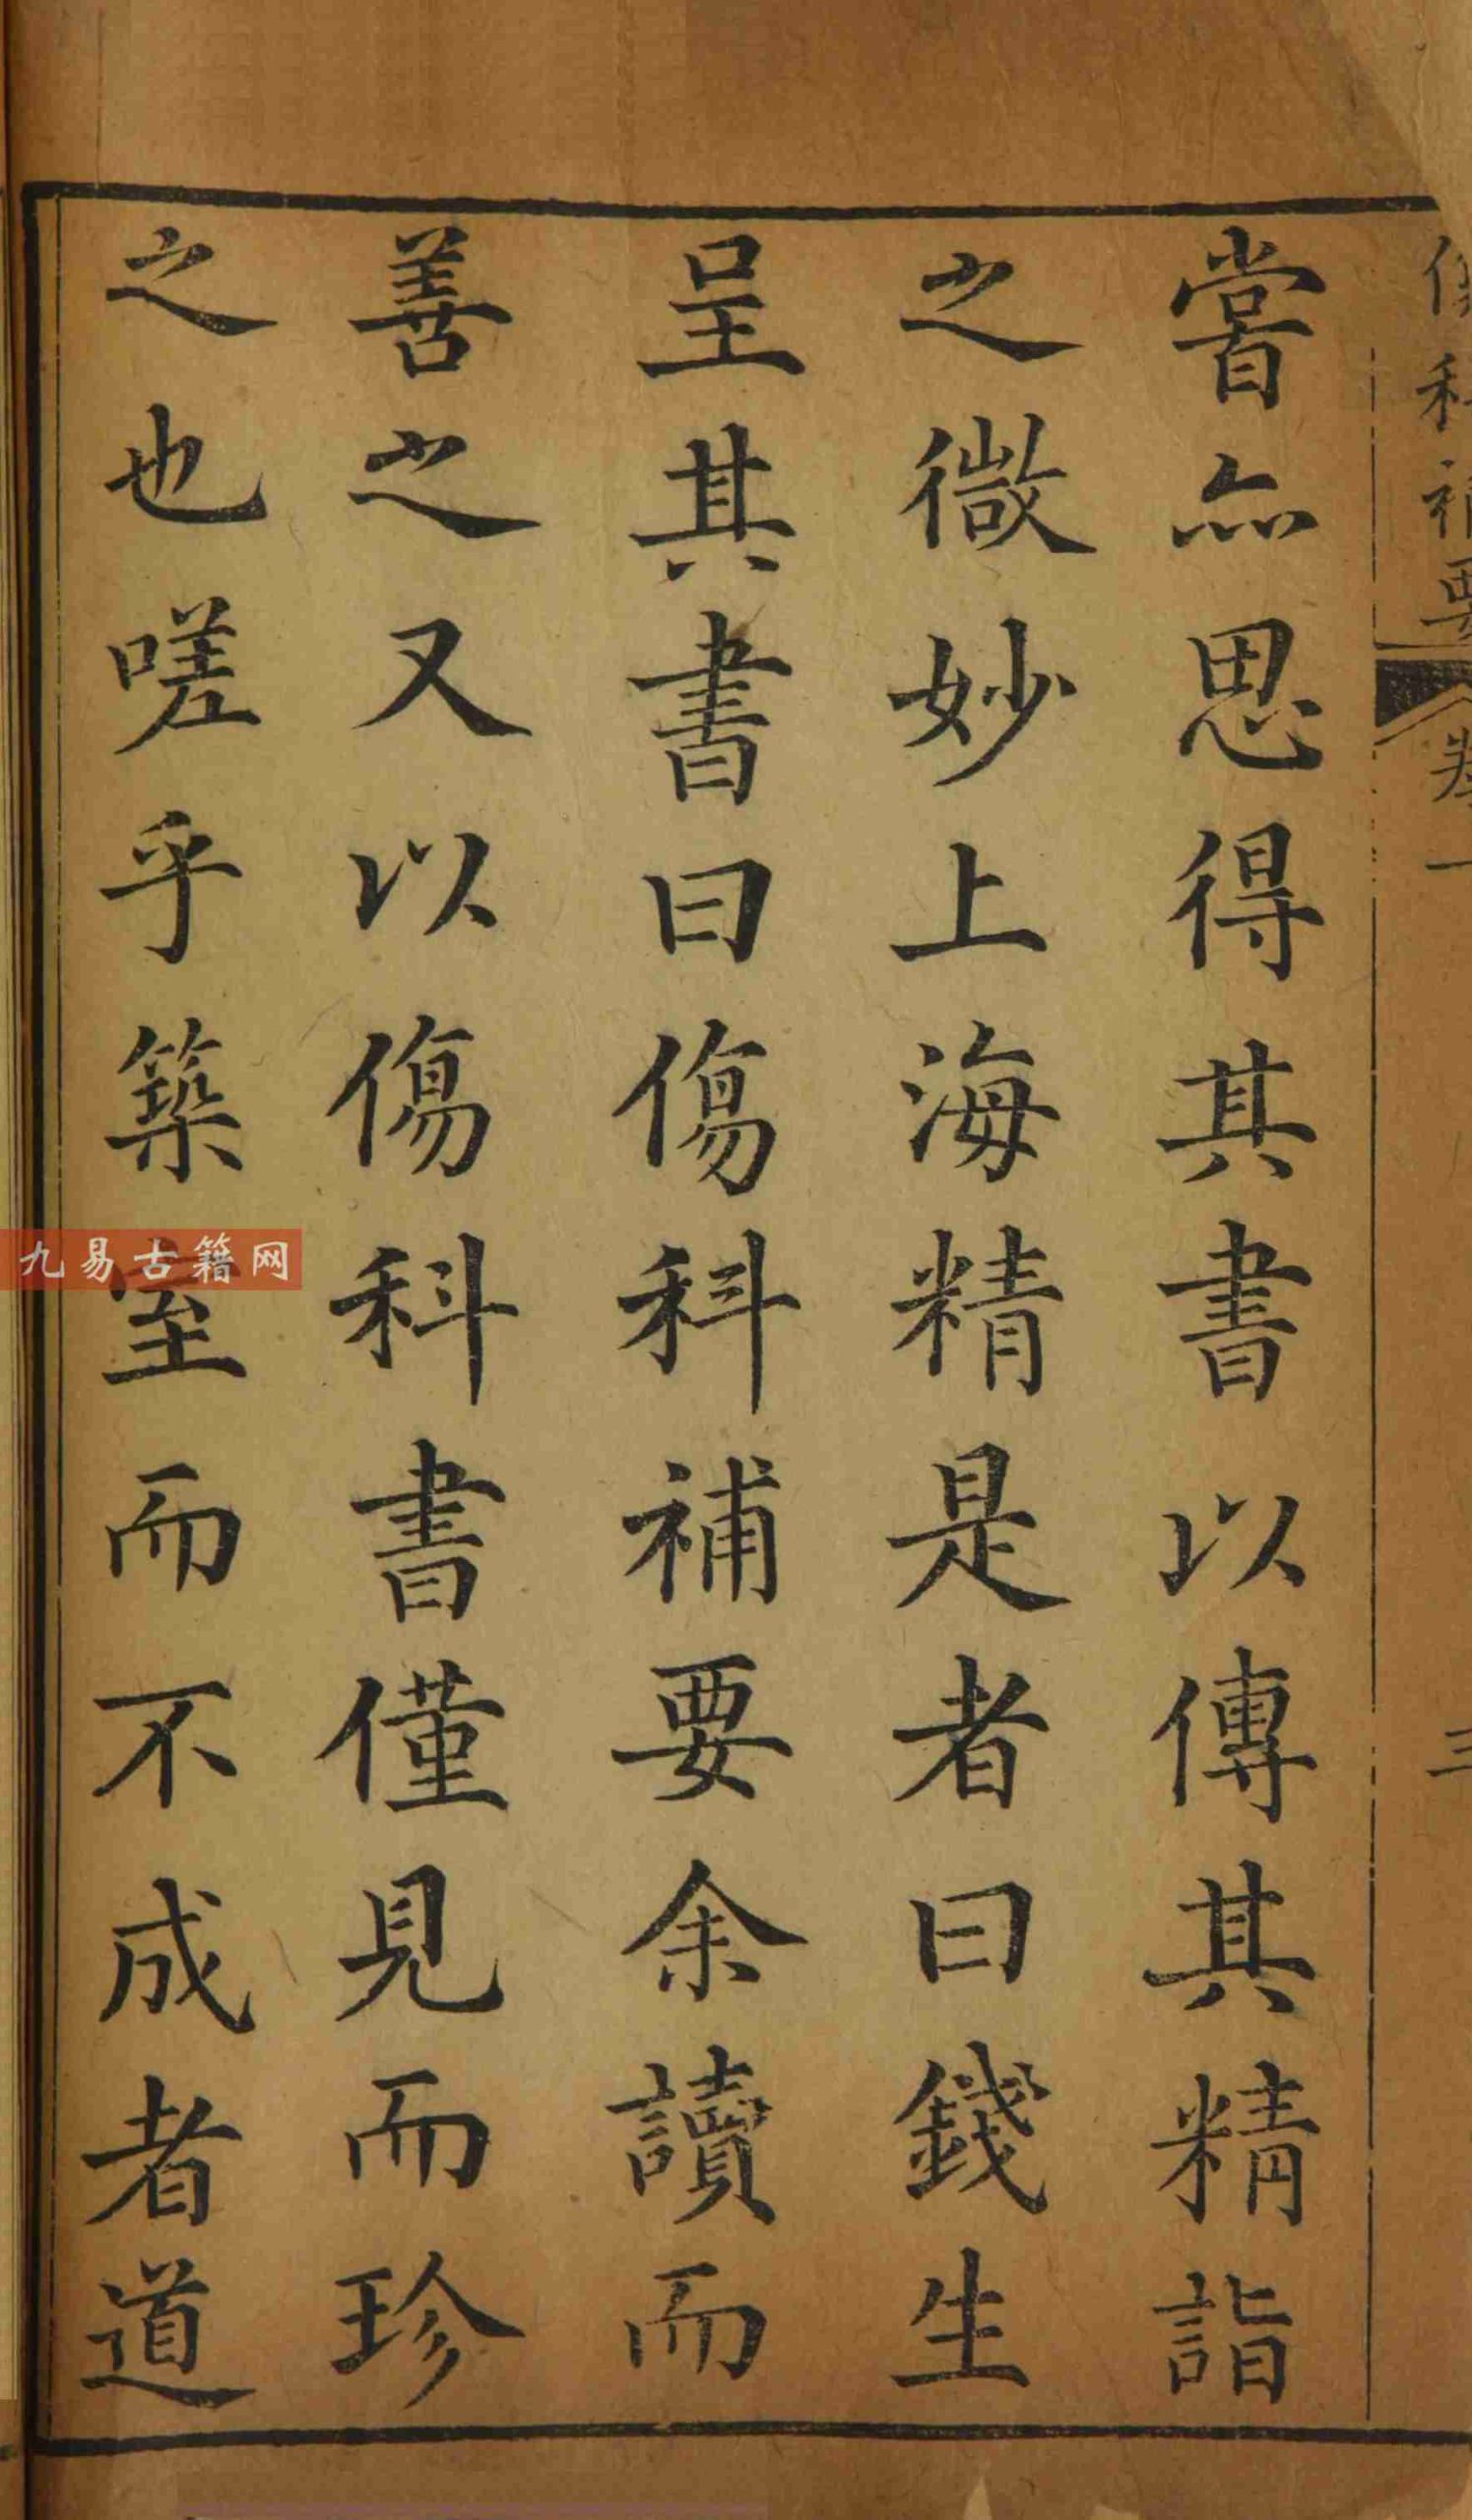 傷科補要 卷一 三
嘗亦思得其書以傳其精詣
之微妙上海精是者曰錢生
呈其書曰傷科補要余讀而
善之又以傷科書僅見而珍
之也嗟乎築室而不成者道
九易古籍网